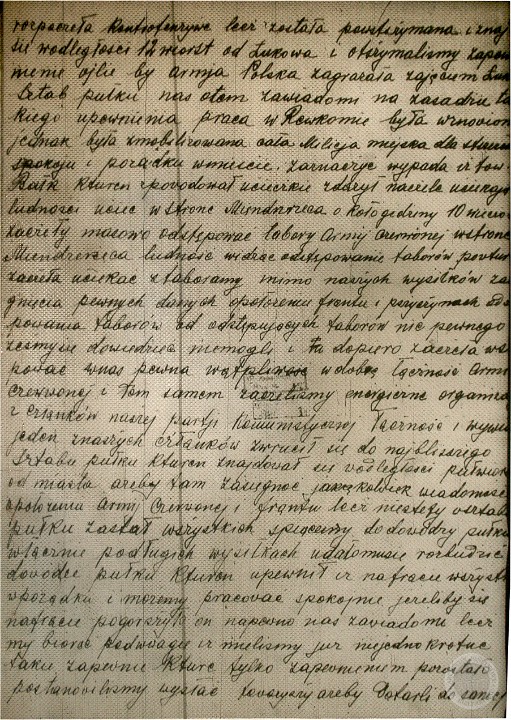 rozpoczeta Kontrofenzywe lecz została powstrzymana i znaj
sie wodległości 18 wiorst od Łukowa i otrzymalismy zapew
nienie ojlie by armja Polska zagrażała zajęciem Łuk
Sztab pułku nas otem zawiadomi na zasadzie ta
kiego upewnienia praca w Rewkomie była wznowion
jednak była zmobilizowana cała Milicja miejska dla
spokoju i porządku wmieście. Zaznaczyc wypada iż tow
kturen spowodował ucieczkie zdązył naczele
ludnosci uciec w strone Miendzrzeca o koło godziny 10 wiecz
zaczeły masowo odstępować tabory Armij czerwonej wstrone
Miendzrzeca ludność widząc odstępowanie taborów powtur
zaczeła uciekać z taboramy mimo naszych wysiłków za
gnięcia pewnych danych opołożeniu frontu i przyczynach ods
powania taborów od odstępujących taborów nic pewnego
zesmy sie dowiedzieć niemogli i tu dopiero zaczeła wst
pować wnas pewna wątpliwość w dobrą łączność Armi
czerwonej i tem samem zaczelismy energiczne organizo
z członków naszej partji Komunistycznej łączność i
jeden znaszych członków zwrucił się do najbliszego
Sztabu pułku kturen znajdował się wodległości pułwior
od miasta azeby tam zasiegnoć jakiejkolwiek wiadomosci
opołozeniu Armij Czerwonej i frontu lecz niestety wsztabie
pułku zastał wszystkich spięcemy do dowódzy pułku
włącznie podługich wysiłkach udało musie rozbudzić
dowódce pułku kturen upewnił iz nafrącie wszyst
wporządku i mozemy pracować spokojnie jezeliby się
nafrącie pogorszyło on napewno nas zawiadomi lecz
my biorąc poduwagie iz mielismy juz niejednokrotne
takie zapewnie kture tylko zapewnieniem pozostało
postanowilismy wysłać towarzyszy azeby Dotarli do samej